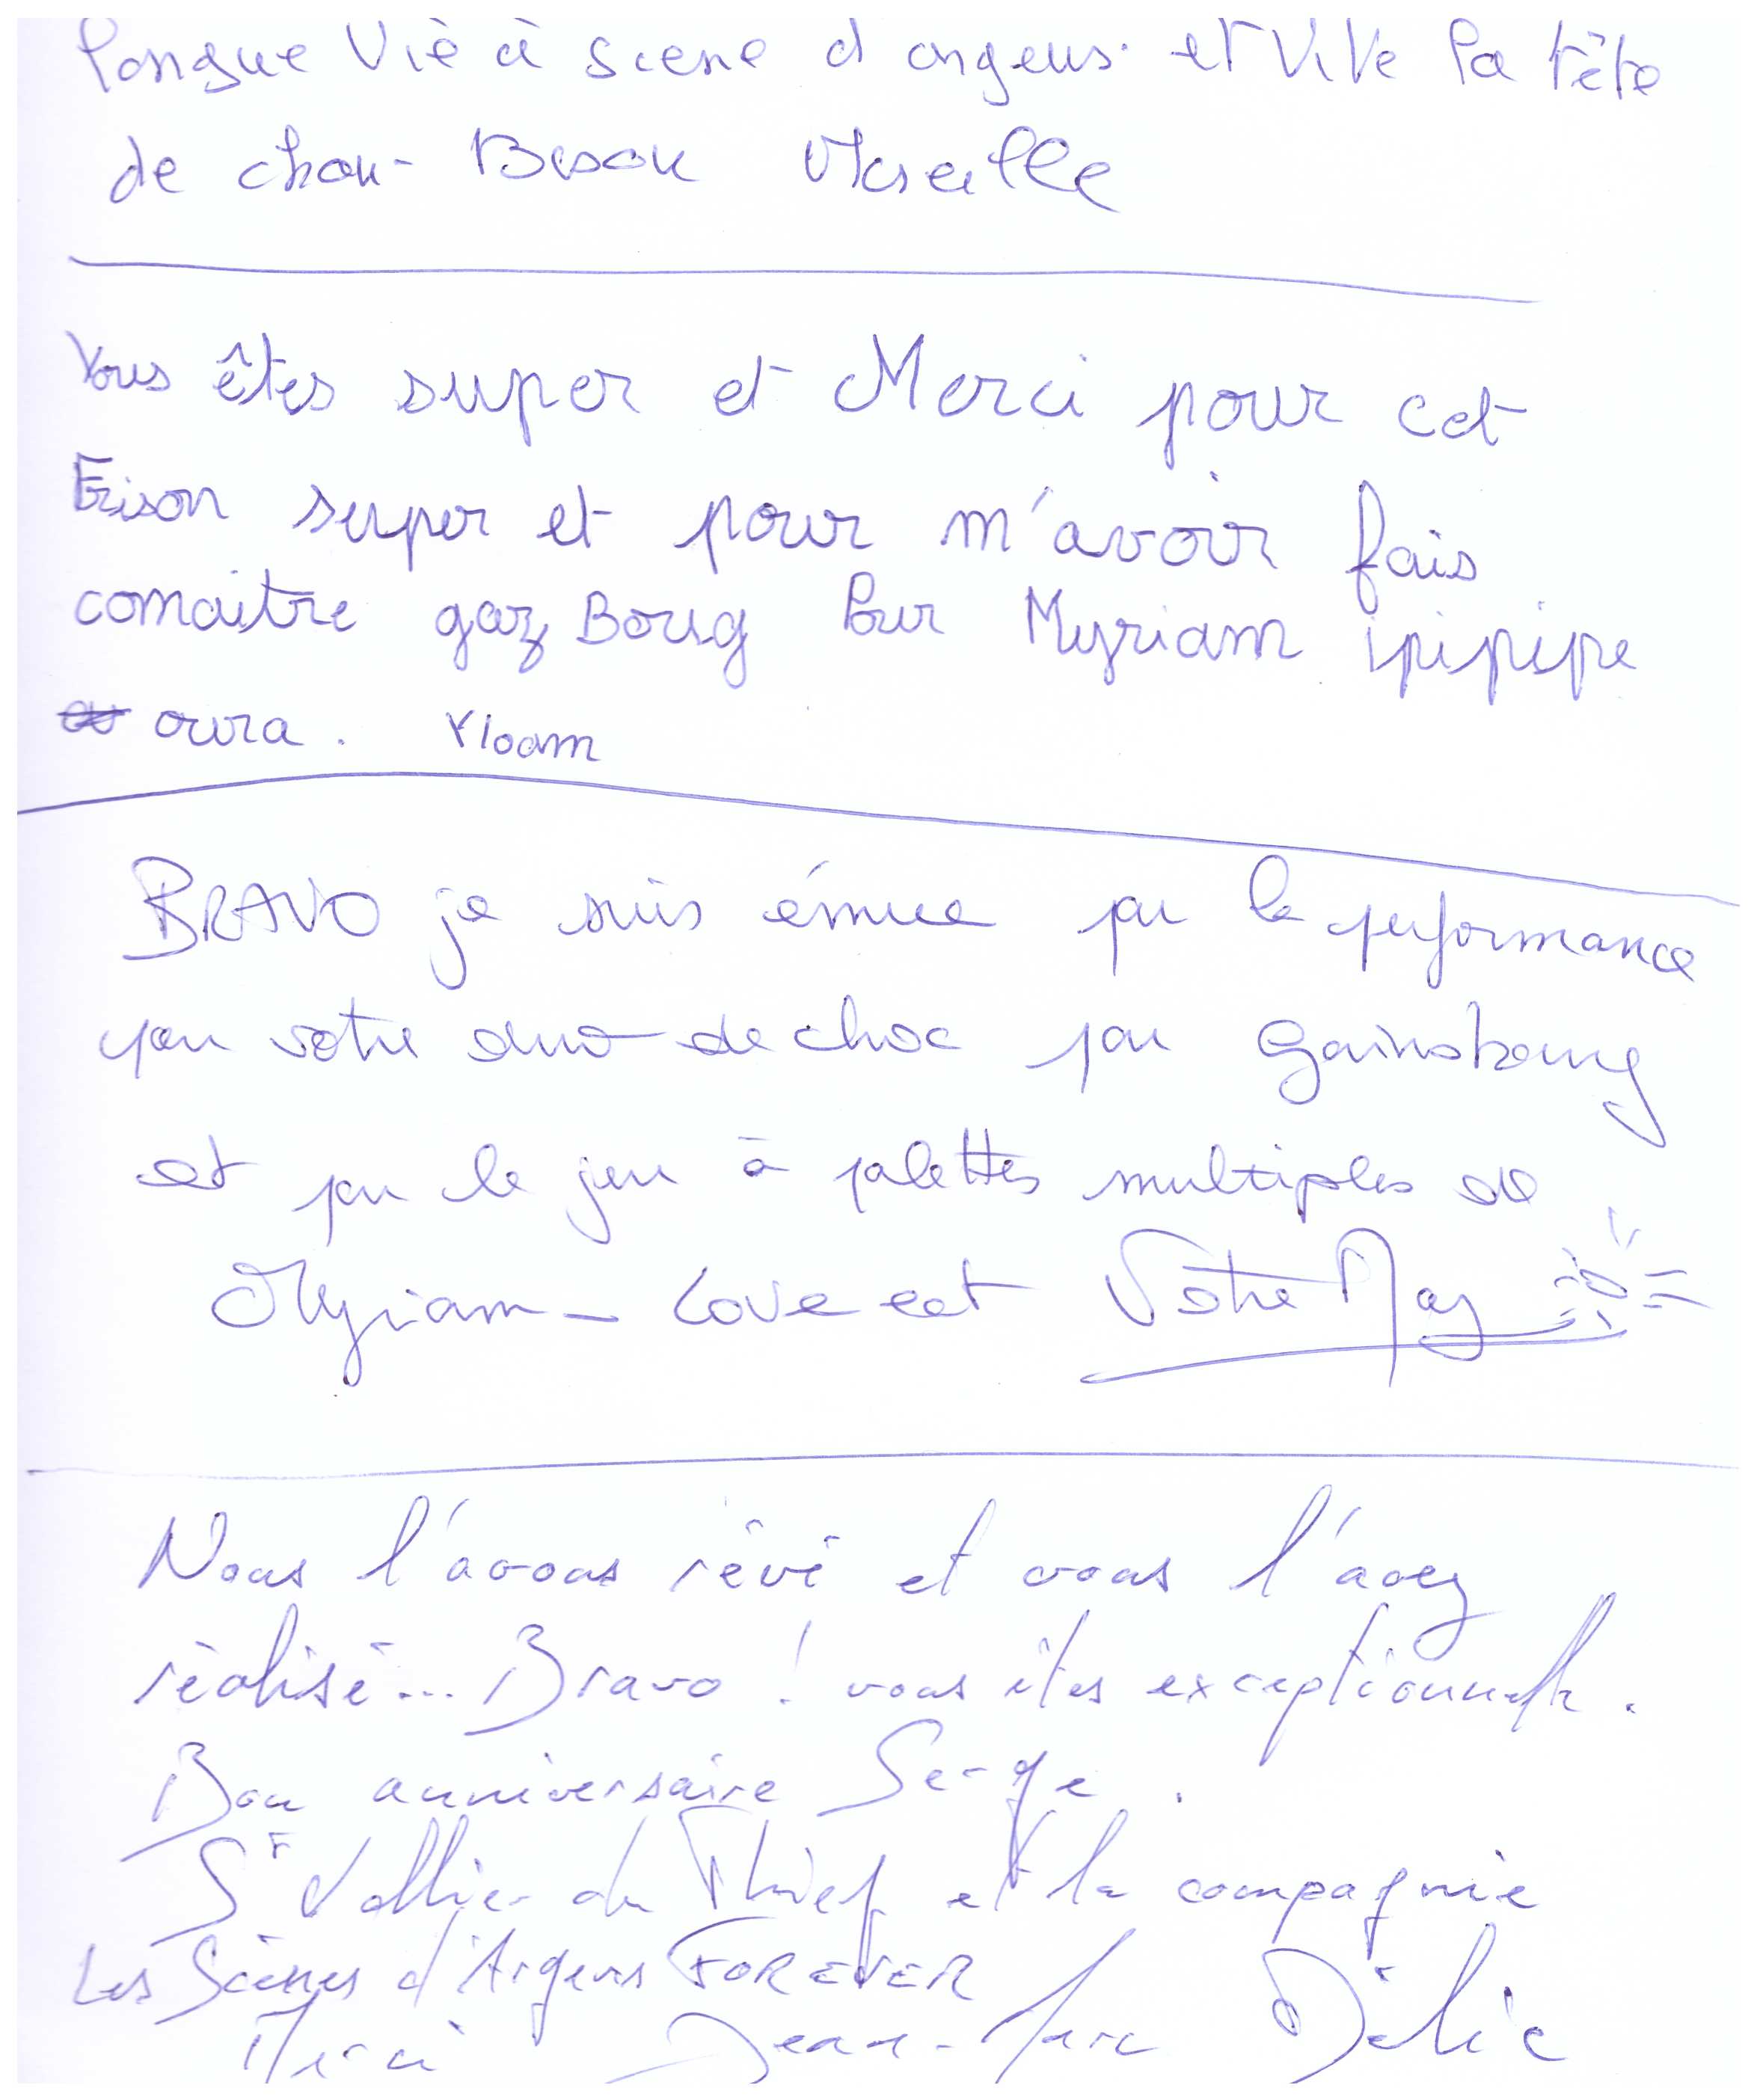 longue Vie à Scene d argens. et Vive la tête
de chou - Bisou Mireille
Vous êtes super et Merci pour cet
Frison super et pour m'avoir fais
comaitre gaz Boug Pour Myriam ipipipe
oura. Yloam
BRAVO je suis émue par la performance
par votre duo de choc par Gainsbourg
et par le jeu à palettes multiples de
Myriam - Love eet Votre May
Nous l'avons rêvé et vous l'avez
réalisé... Bravo ! vous êtes exceptionnels.
Bon anniversaire Serge.
St Vallier de Thiey et la compagnie
Les Scènes d'Argens FOREVER
Merci Jean-Marc